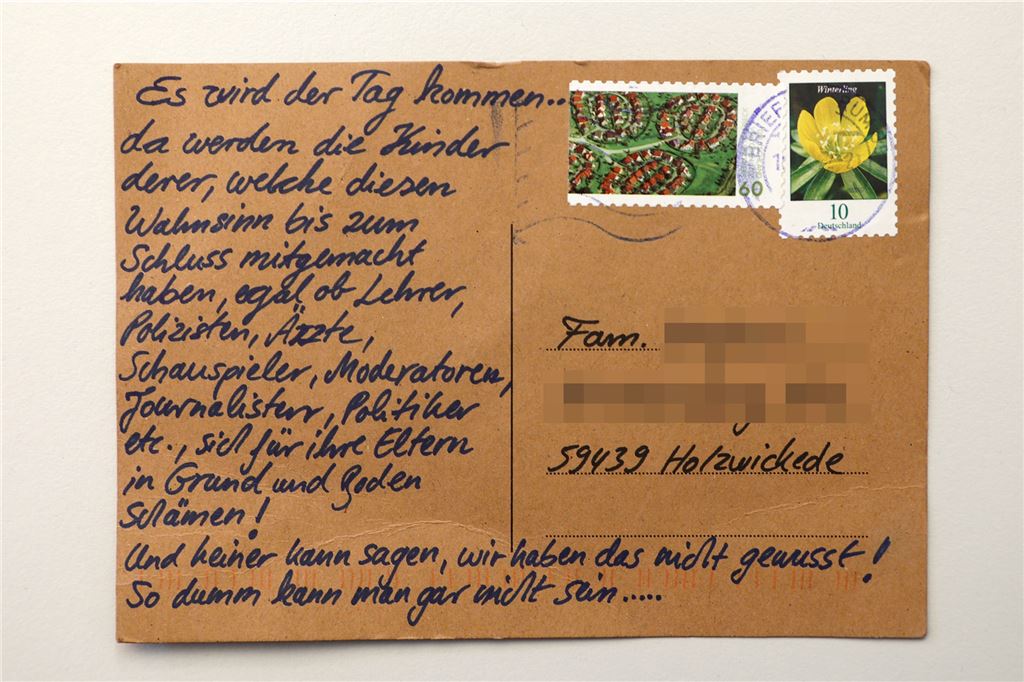 Es wird der Tag kommen..
da werden die Kinder
derer, welche diesen
Wahnsinn bis zum
Schluss mitgemacht
haben, egal ob Lehrer,
Polizisten, Ärzte,
Schauspieler, Moderatoren,
Journalisten, Politiker
etc., sich für ihre Eltern
in Grund und Boden
schämen!
Und keiner kann sagen, wir haben das nicht gewusst!
So dumm kann man gar nicht sein.....
60
Winterling
10
Deutschland
BRIEF
Fam.
59439 Holzwickede